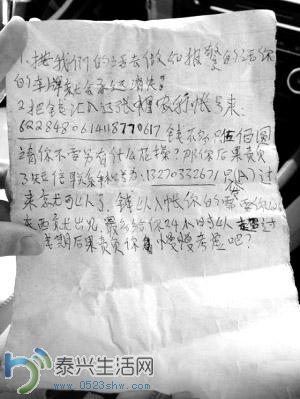 1.按我们的话去做如报警的话你
的车牌就会永远消失?
2.把钱汇入这张农行帐号来:
6228480614118770617 钱不多只伍佰圆
请你不要另有什么花操?那你后果责负
3.短信联系 13270332671 只(A)过
来就可以了,钱以入帐你的
东西就出见,最 给你24小时以 过
其期后果责负你慢慢考虑吧?
泰兴生活网
www.0523shw.com